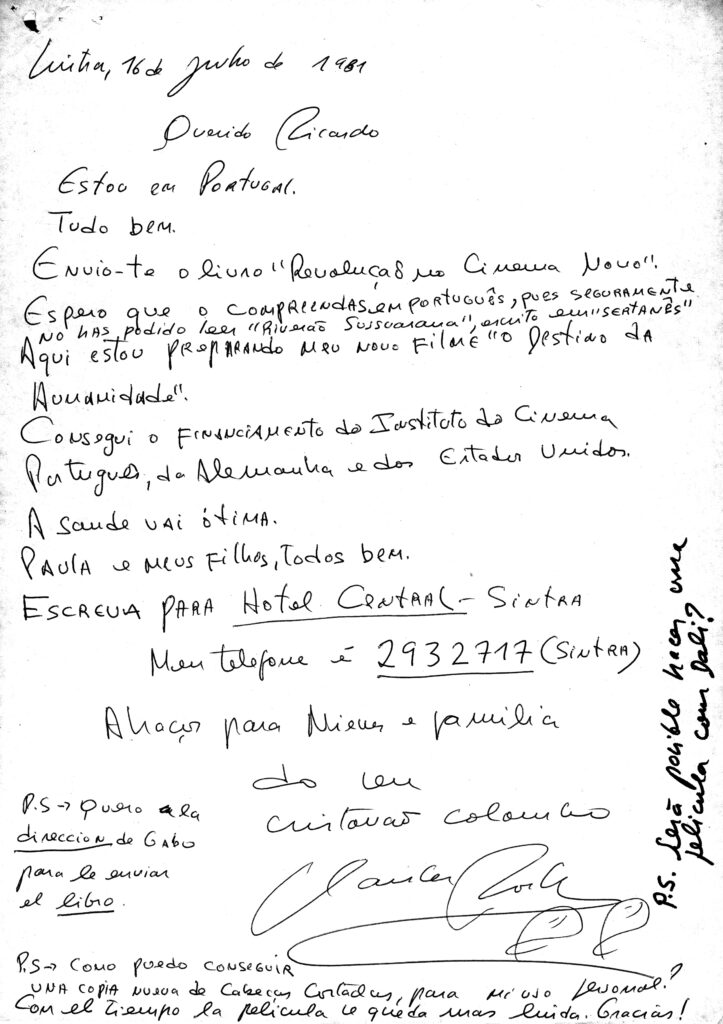 Sintra, 16 de junho de 1981
Querido Ricardo
Estou em Portugal.
Tudo bem.
Envio-te o livro "Revolução no Cinema Novo".
Espero que o compreendas em português, pues seguramente
no has podido leer "Riverão Sussuarana", escrito em "sertanês"
Aqui estou preparando meu novo filme "O Destino da
Humanidade".
Consegui o financiamento do Instituto do Cinema
Português, da Alemanha e dos Estados Unidos.
A saude vai ótima.
Paula e meus filhos, todos bem.
Escreva para Hotel Central - Sintra
Meu telefone é 2932717 (Sintra)
Abraços para Nieves e familia
do seu
Cristovão Colombo
Glauber Rocha
P.S → Quero la
direccion de Gabo
para le enviar
el libro.
P.S → Como puedo conseguir
una copia nueva de Cabeças Cortadas, para mi uso personal?
Con el tiempo la pelicula le queda mas linda. Gracias!
P.S. Será posible hacer una
pelicula com Dali?